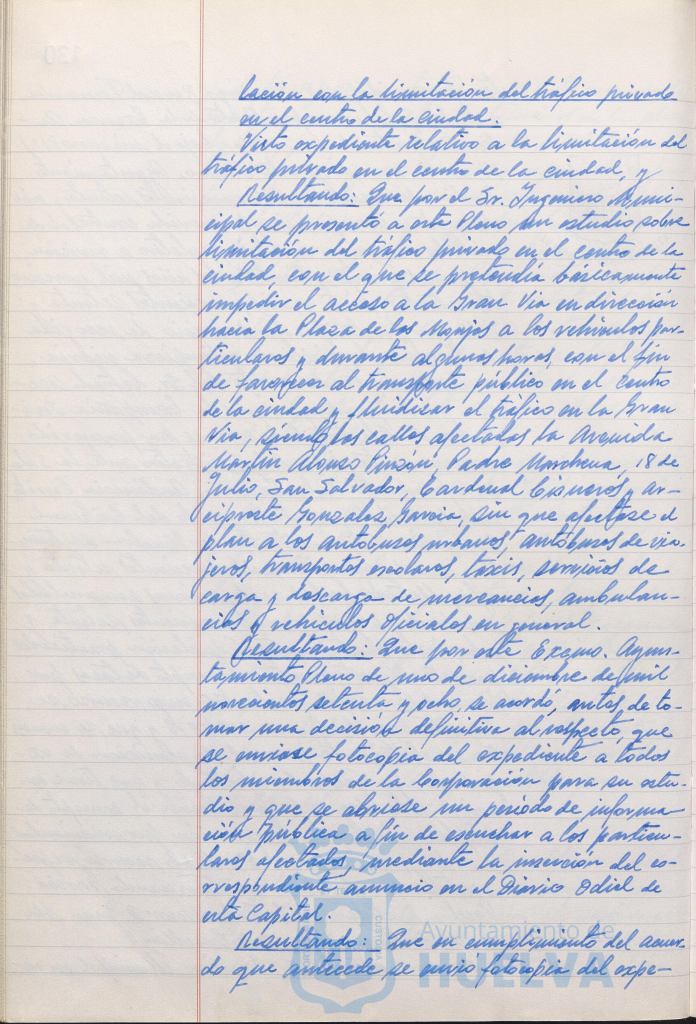 lación con la limitación del tráfico privado
en el centro de la ciudad.
Visto expediente relativo a la limitación del
tráfico privado en el centro de la ciudad, y
Resultando: Que por el Sr. Ingeniero Munici-
cipal se presentó a este Pleno un estudio sobre
limitación del tráfico privado en el centro de la
ciudad, con el que se pretendía básicamente
impedir el acceso a la Gran Via en dirección
hacia la Plaza de las Monjas a los vehículos par-
ticulares y durante algunas horas, con el fin
de favorecer al transporte público en el centro
de la ciudad y fluidizar el tráfico en la Gran
Via, siendo las calles afectadas la Avenida
Martín Alonso Pinzón, Padre Marchena, 18 de
Julio, San Salvador, Cardenal Cisneros y ar-
cipreste Gonzalez Garcia, sin que afectase el
plan a los autobuses urbanos, autobuses de via-
jeros, transportes escolares, taxis, servicios de
carga y descarga de mercancias, ambulan-
cias y vehículos oficiales en general.
Resultando: Que por este Excmo. Ayun-
tamiento Pleno de uno de diciembre de mil
novecientos setenta y ocho, se acordó, antes de to-
mar una decisión definitiva al respecto, que
se enviase fotocopia del expediente a todos
los miembros de la Corporación para su estu-
dio y que se abriese un período de informa
ción pública a fin de escuchar a los particu-
lares afectados, mediante la inserción del co-
rrespondiente anuncio en el Diario Odiel de
esta Capital.
Resultando: Que en cumplimiento del acuer-
do que antecede se envio fotocopia del expe-
Ayuntamiento de
HUELVA